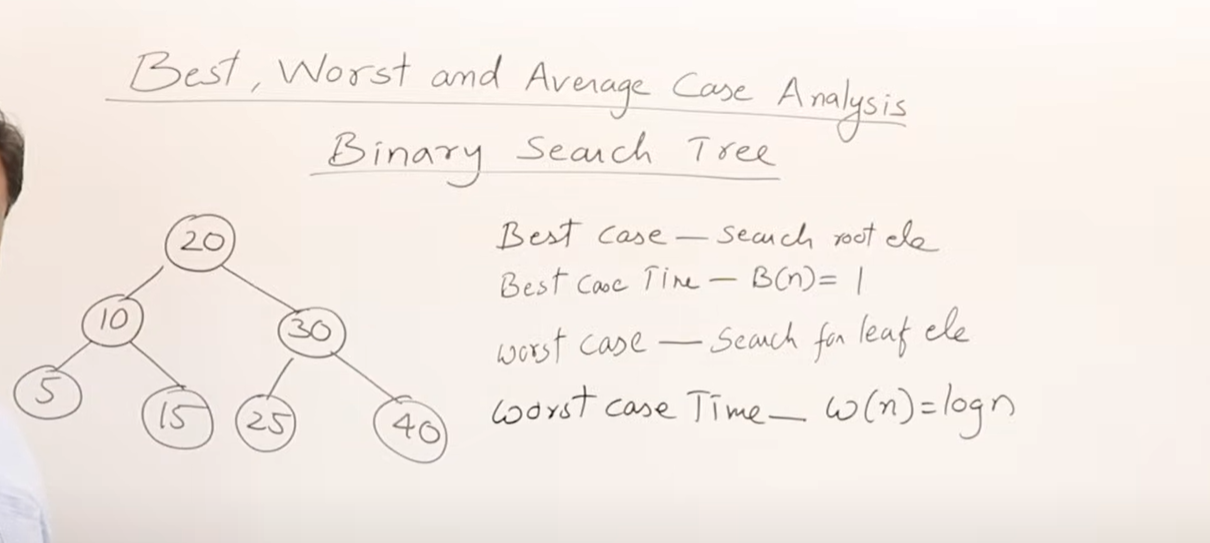 Best, Worst and Average Case Analysis
Binary Search Tree
20
10
30
5
15
25
40
Best case — search root ele
Best Case Time — B(n) = 1
worst case — search for leaf ele
worst case Time — w(n) = log n